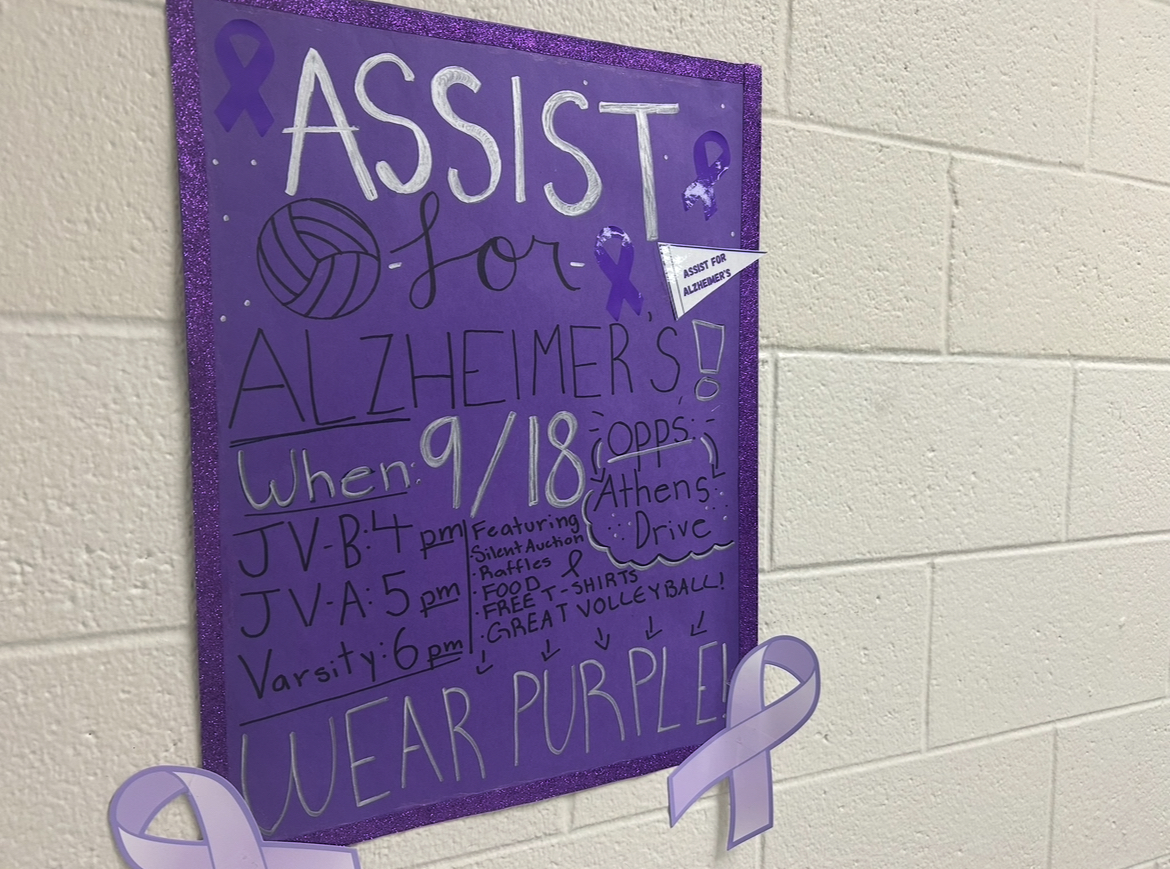 ASSIST
-for-
ASSIST FOR
ALZHEIMER'S
ALZHEIMER'S!
When: 9/18
opps:
Athens
Drive
JV-B: 4 pm
JV-A: 5 pm
Varsity: 6 pm
Featuring
·Silent Auction
·Raffles
·FOOD
·FREE T-SHIRTS
·GREAT VOLLEYBALL!
WEAR PURPLE!